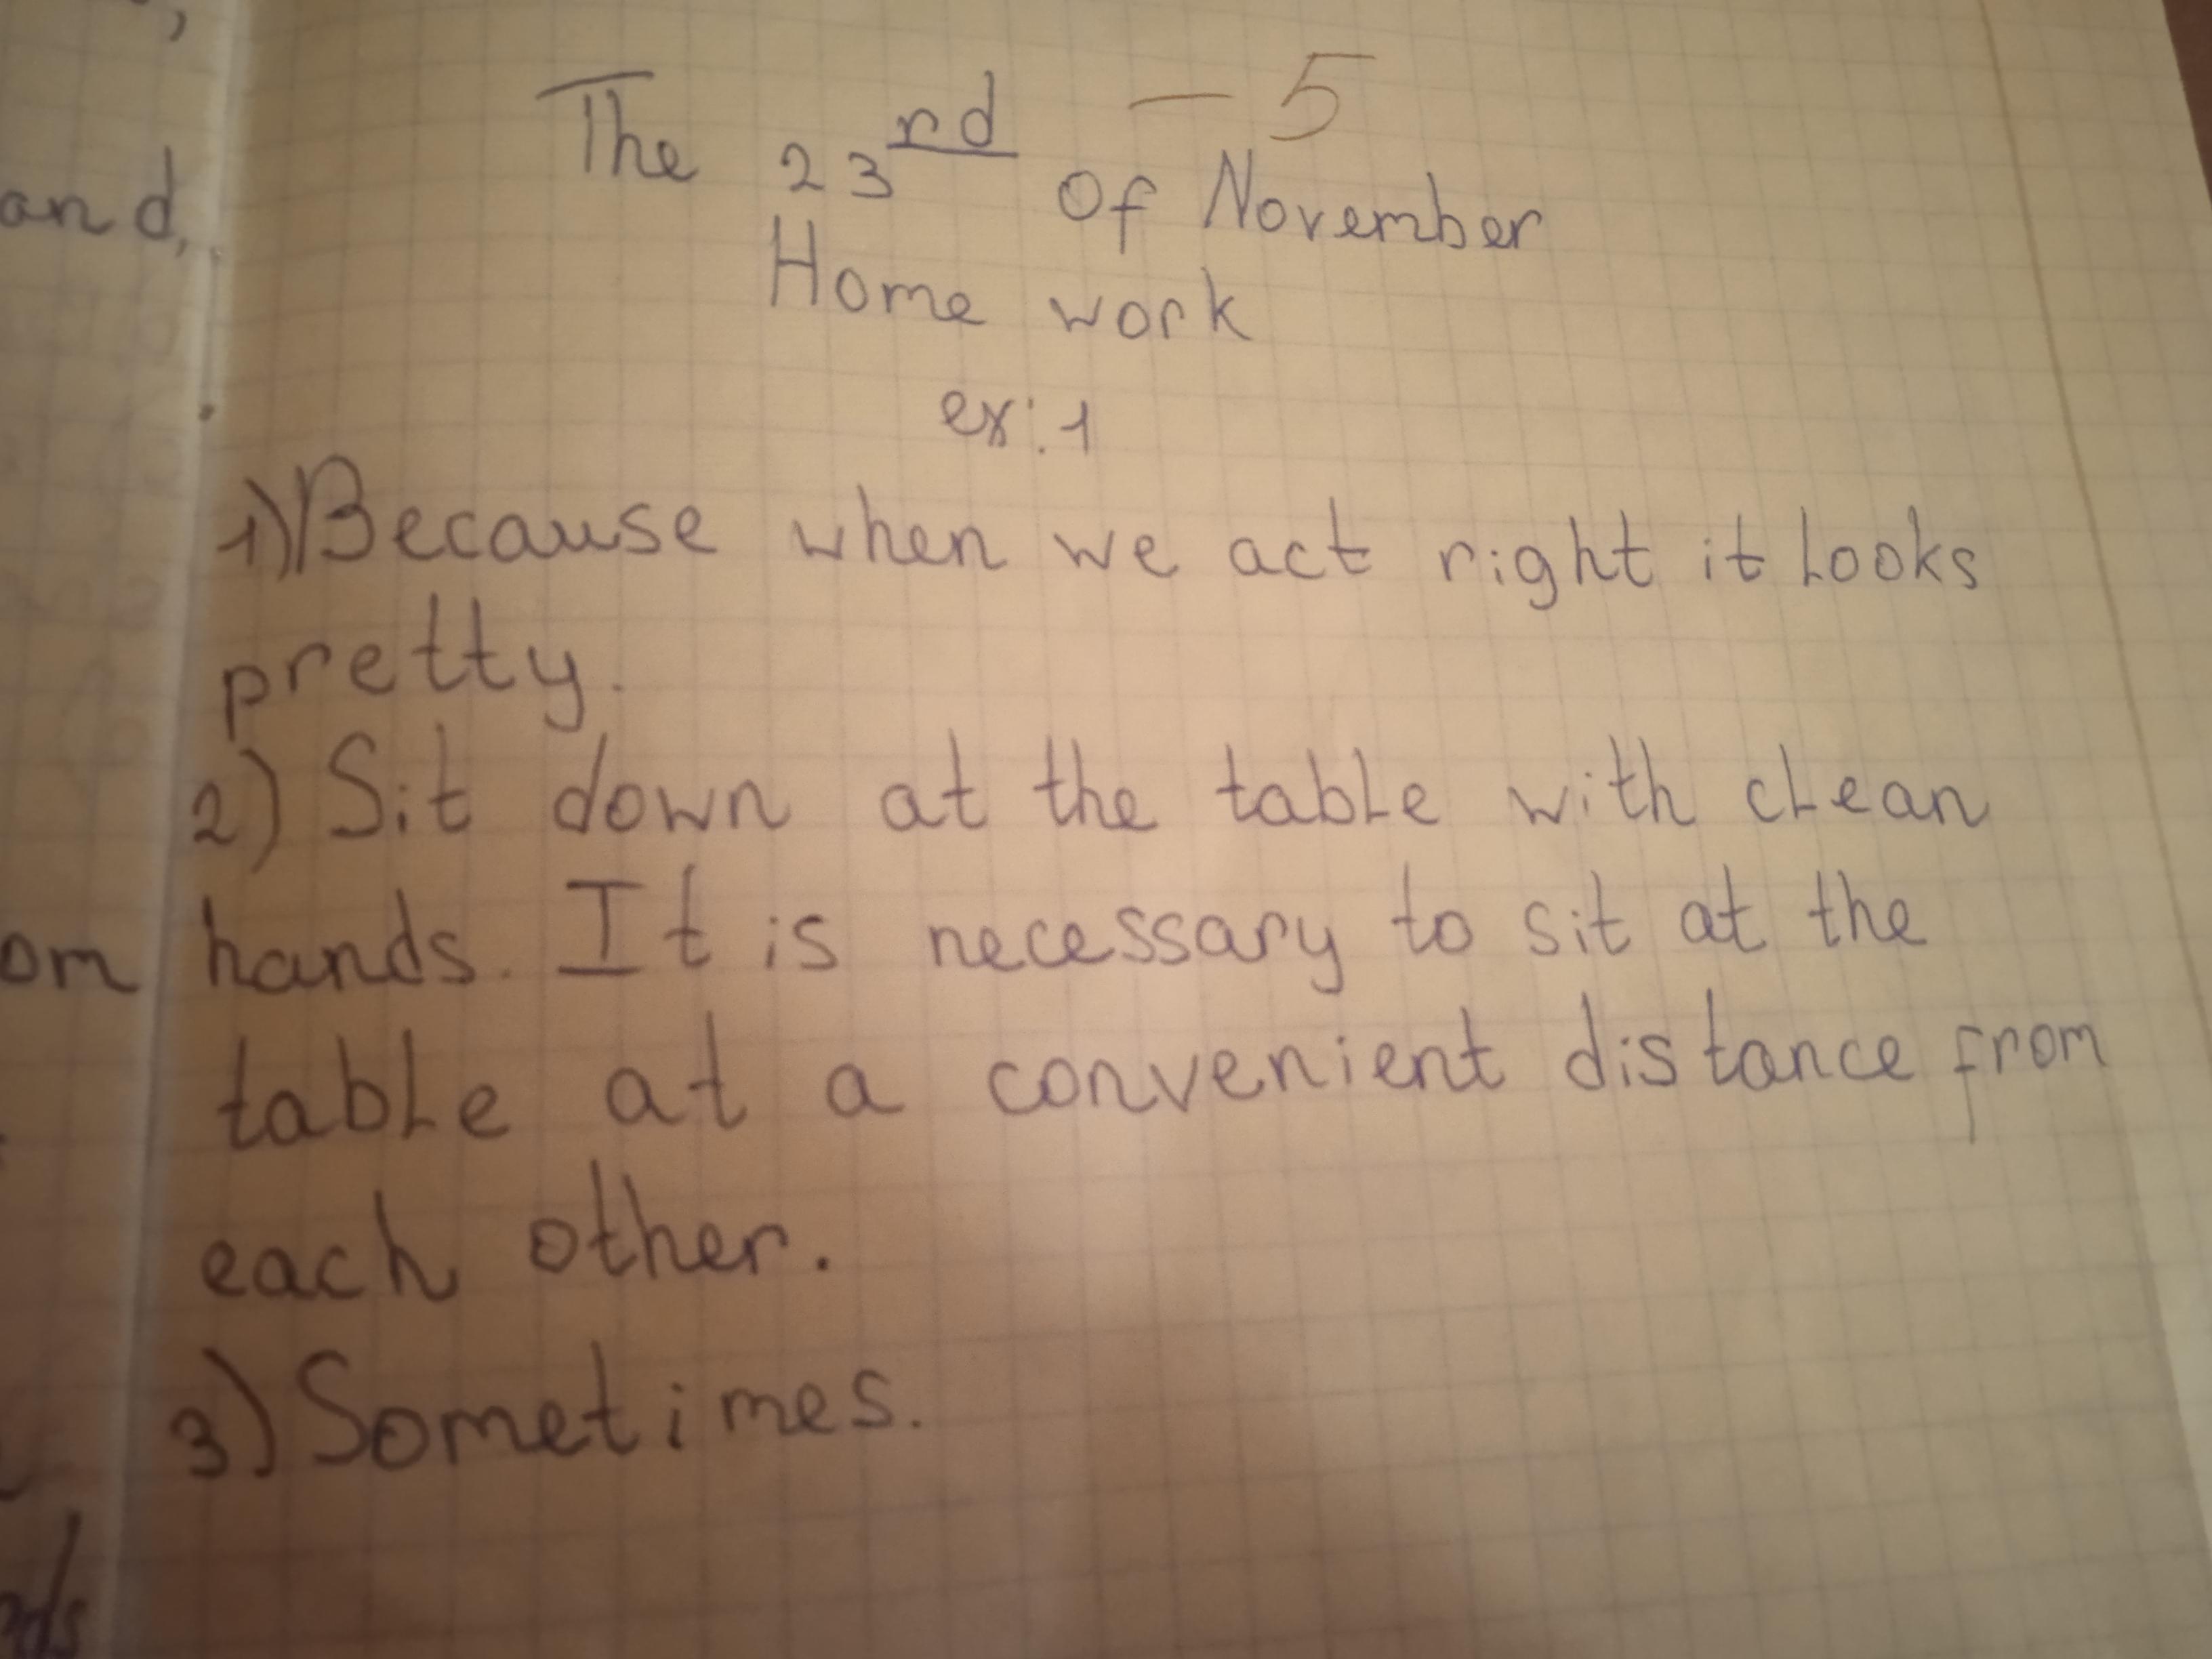 and,
The 23rd of November - 5
Home work
ex: 1
1) Because when we act right it looks
pretty.
2) Sit down at the table with clean
hands. It is necessary to sit at the
om
table at a convenient distance from
each other.
3) Sometimes.